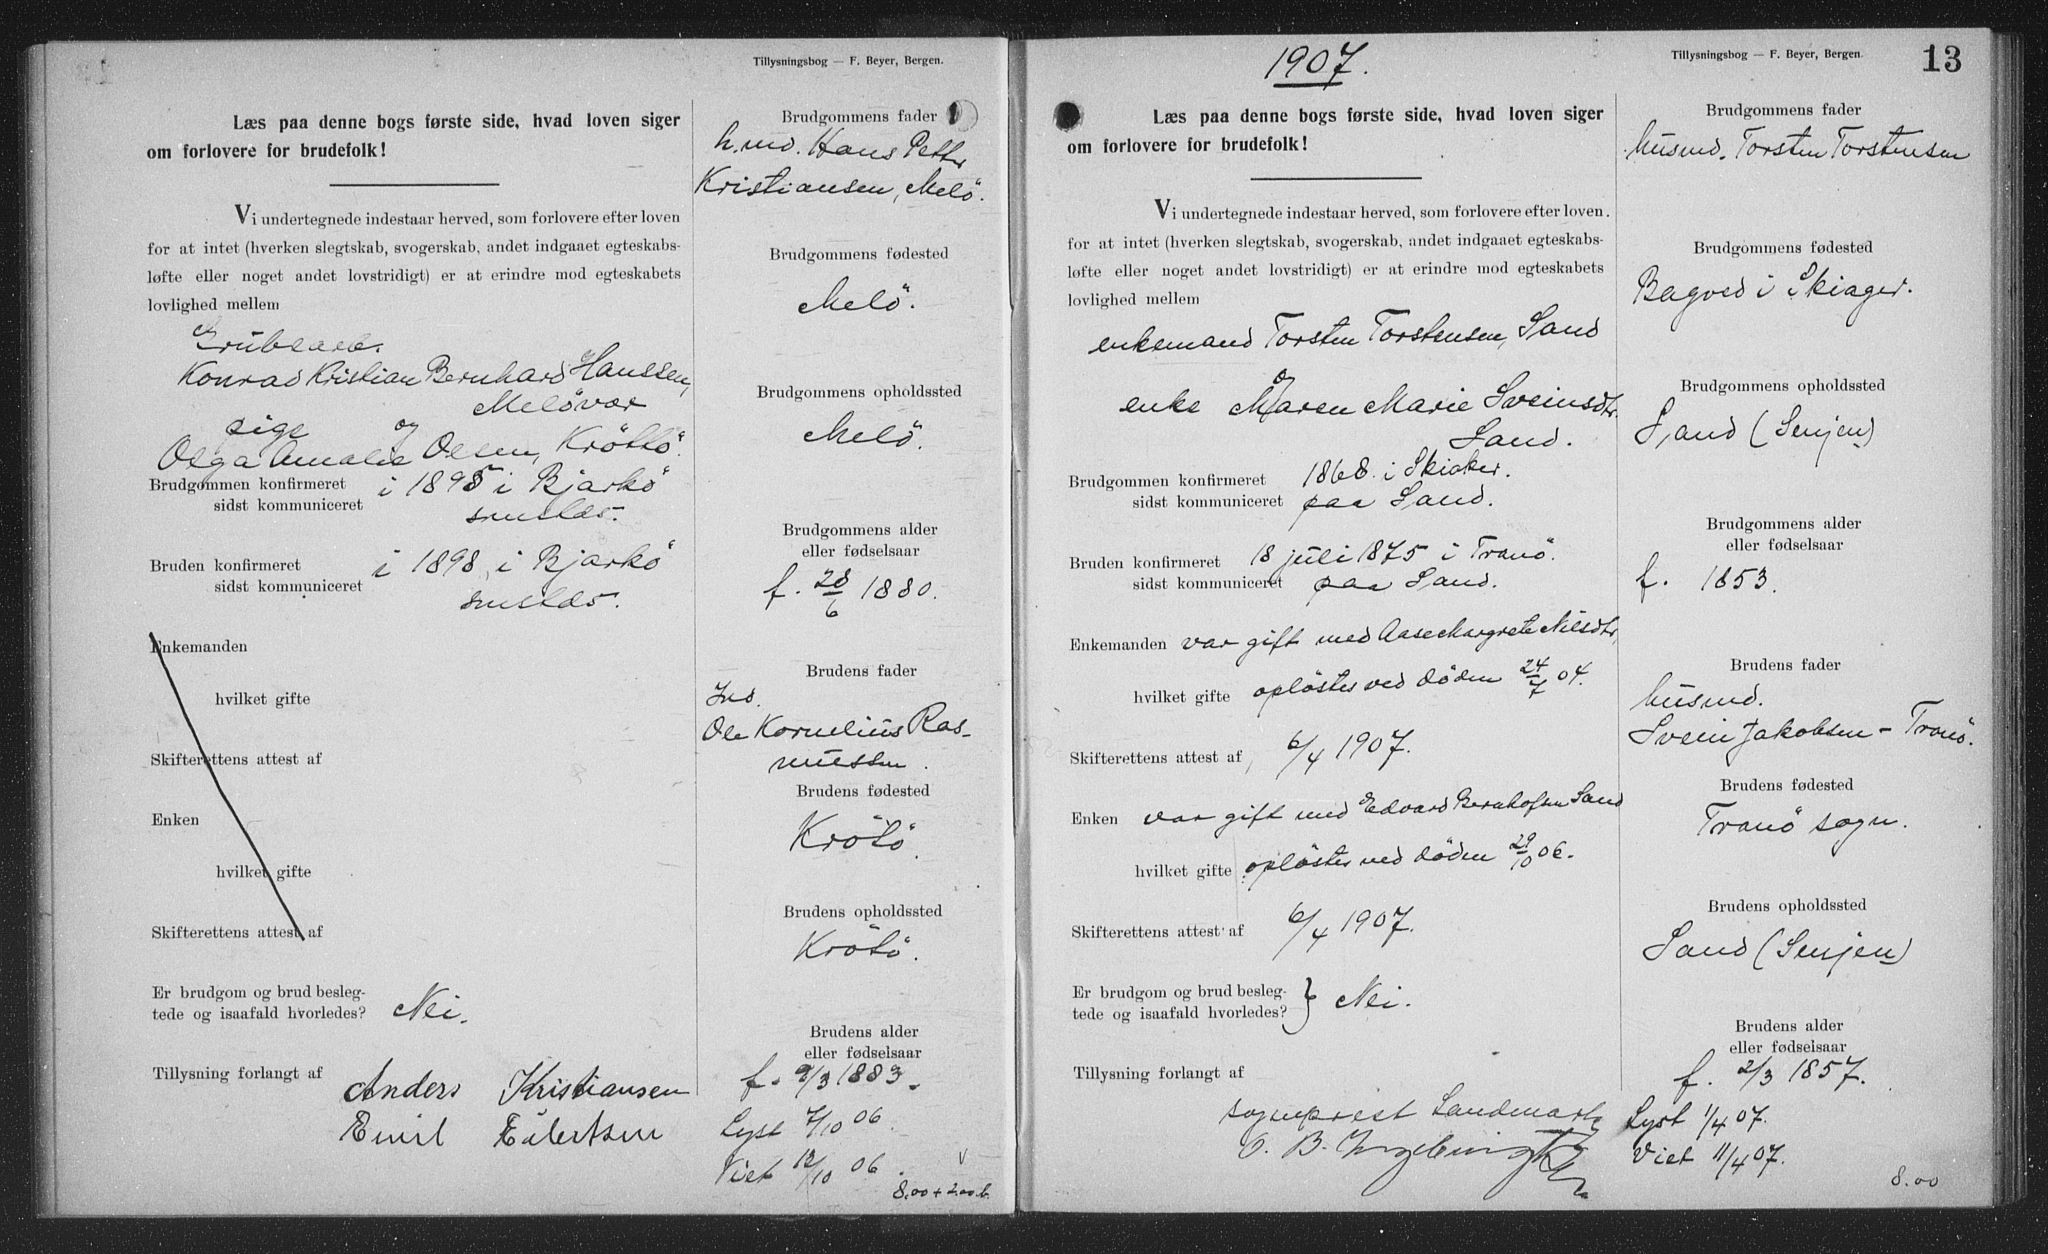 Tillysningsbog — F. Beyer, Bergen.
Læs paa denne bogs første side, hvad loven siger
om forlovere for brudefolk!
Vi undertegnede indestaar herved, som forlovere efter loven
for at intet (hverken slegtskab, svogerskab, andet indgaaet egteskabs-
løfte eller noget andet lovstridigt) er at erindre mod egteskabets
lovlighed mellem
Konrad Kristian Bernhard Hanssen,
Melövær
pige og
Olga Amalie Olsen, Kröttö.
Brudgommen konfirmeret i 1895 i Bjarkö
sidst kommuniceret smstds.
Bruden konfirmeret i 1898, i Bjarkö
sidst kommuniceret smstds.
Enkemanden
hvilket gifte
Skifterettens attest af
Enken
hvilket gifte
Skifterettens attest af
Er brudgom og brud besleg-
tede og isaafald hvorledes? Nei.
Tillysning forlangt af
Anders Kristiansen
Emil Eilertsen
Brudgommens fader
h.md. Hans Petter
Kristiansen, Melö.
Brudgommens fødested
Melö.
Brudgommens opholdssted
Melö.
Brudgommens alder
eller fødselsaar
f. 28/6 1880.
Brudens fader
Ind.
Ole Kornelius Ras-
mussen.
Brudens fødested
Krötö.
Brudens opholdssted
Krötö.
Brudens alder
eller fødselsaar
f. 9/3 1883.
Lyst 7/10 06.
Viet 12/10 06.
8.00 + 2.00 b.
1907.
Tillysningsbog — F. Beyer, Bergen.
13
Læs paa denne bogs første side, hvad loven siger
om forlovere for brudefolk!
Vi undertegnede indestaar herved, som forlovere efter loven.
for at intet (hverken slegtskab, svogerskab, andet indgaaet egteskabs-
løfte eller noget andet lovstridigt) er at erindre mod egteskabets
lovlighed mellem
enkemand Torsten Torstensen, Sand
og
enke Maren Marie Sveinsdtr.
Sand.
Brudgommen konfirmeret 1868. i Skiaker.
sidst kommuniceret paa Sand.
Bruden konfirmeret 18 juli 1875 i Tranö.
sidst kommuniceret paa Sand.
Enkemanden var gift med Aase Margrete Nilsdtr,
hvilket gifte oplöstes ved döden 24/7 04.
Skifterettens attest af 6/4 1907.
Enken var gift med Edvard Bernhofsen Sand
hvilket gifte oplöstes ved döden 29/10 06.
Skifterettens attest af 6/4 1907.
Er brudgom og brud besleg-
tede og isaafald hvorledes? } Nei.
Tillysning forlangt af
sogneprest Landmark
O. B. Ingebrigtsen
Brudgommens fader
husmd. Torsten Torstensen
Brudgommens fødested
Bagved i Skiager.
Brudgommens opholdssted
Sand (Senjen)
Brudgommens alder
eller fødselsaar
f. 1853.
Brudens fader
husmd.
Svein Jakobsen - Tranö.
Brudens fødested
Tranö sogn.
Brudens opholdssted
Sand (Senjen)
Brudens alder
eller fødselsaar
f. 2/3 1857.
Lyst 1/4 07.
Viet 11/4 07.
8.00